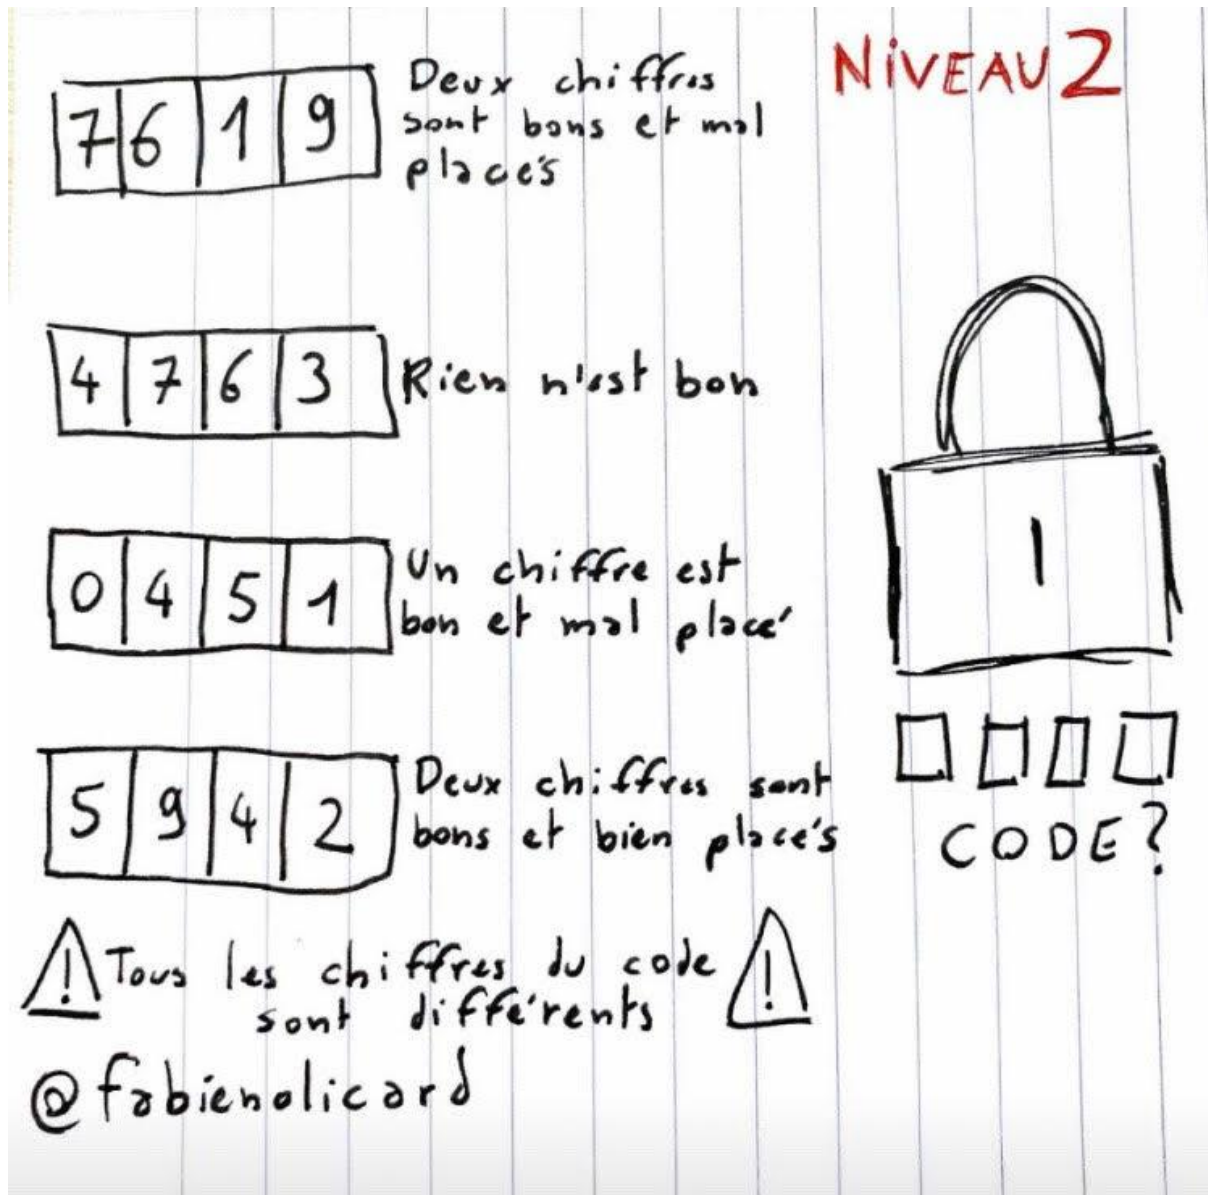 NiVEAU 2
7 6 1 9
Deux chiffres
sont bons et mal
placés
4 7 6 3
Rien n'est bon
0 4 5 1
Un chiffre est
bon et mal placé
5 9 4 2
Deux chiffres sont
bons et bien placés
CODE?
! Tous les chiffres du code !
sont différents
@fabienolicard